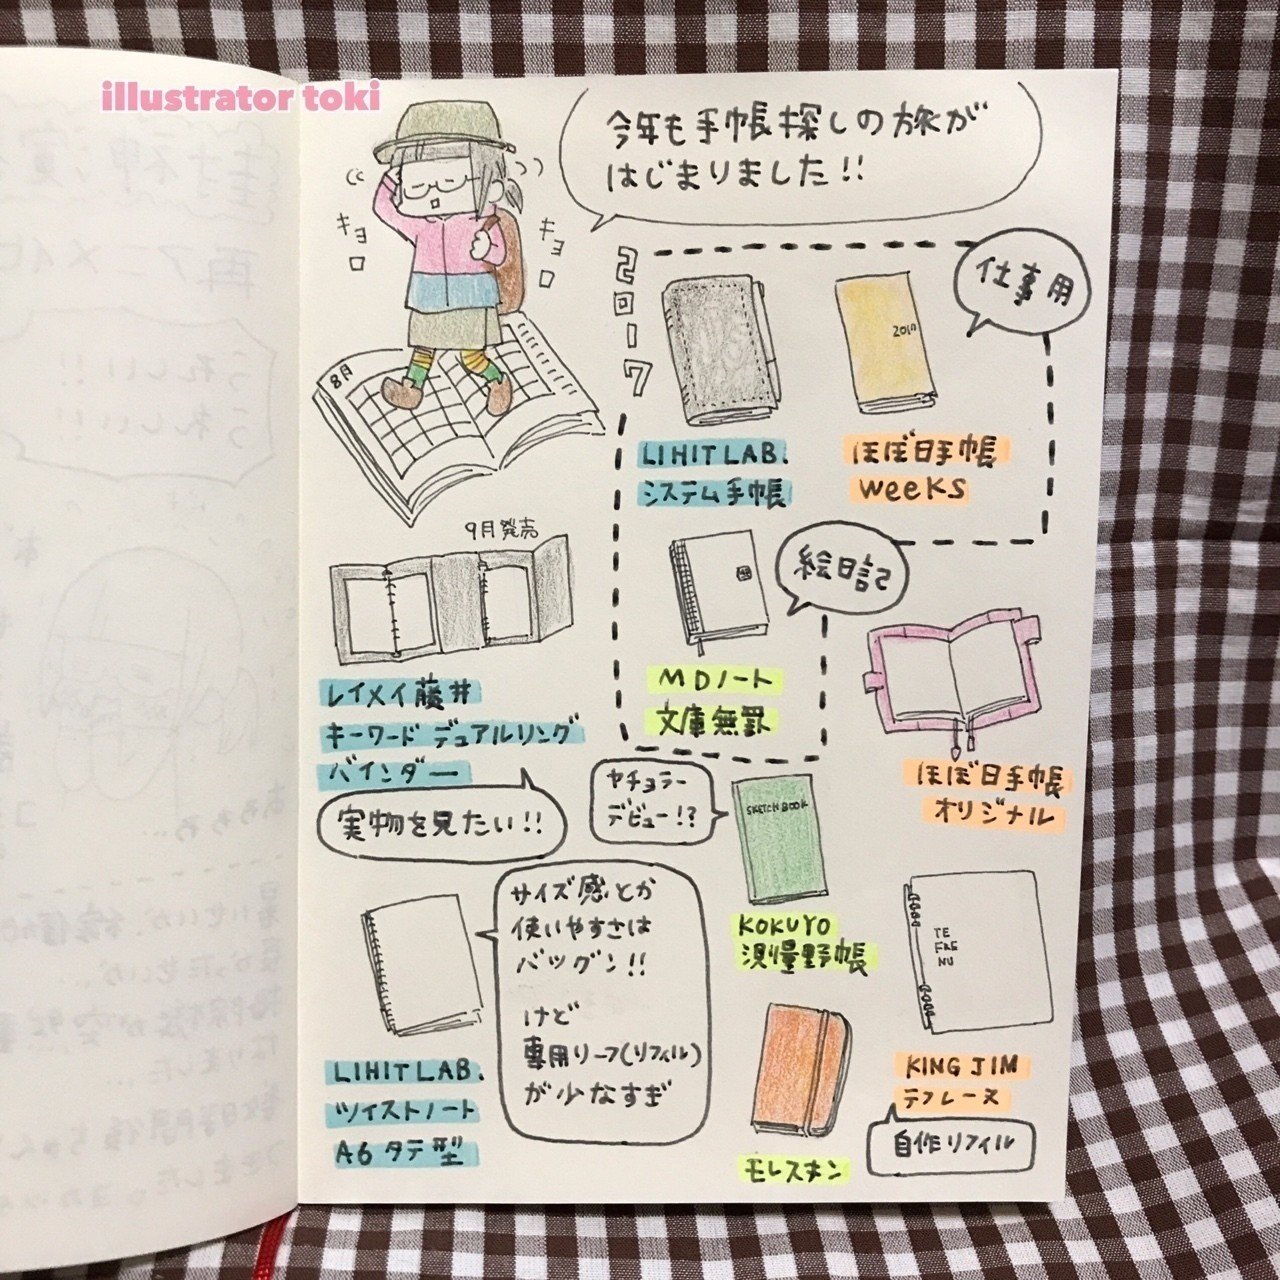 illustrator toki
今年も手帳探しの旅が
はじまりました!!
キョロ
キョロ
8月
2017
仕事用
2017
LIHITLAB.
システム手帳
ほぼ日手帳
weeks
9月発売
レイメイ藤井
キーワード デュアルリング
バインダー
実物を見たい!!
絵日記
MDノート
文庫無罫
ほぼ日手帳
オリジナル
ヤチョラー
デビュー!?
SKETCH BOOK
KOKUYO
測量野帳
サイズ感とか
使いやすさは
バツグン!!
けど
専用リーフ(リフィル)
が少なすぎ
LIHITLAB.
ツイストノート
A6 タテ型
モレスキン
TE
FRE
NU
KING JIM
テフレーヌ
自作リフィル
うれしい!!
うれしい!!